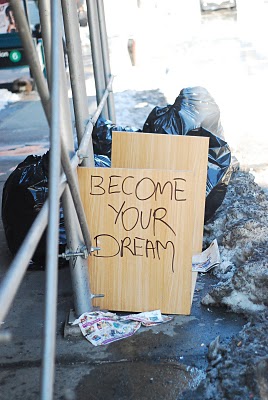 BECOME
YOUR
DREAM
6